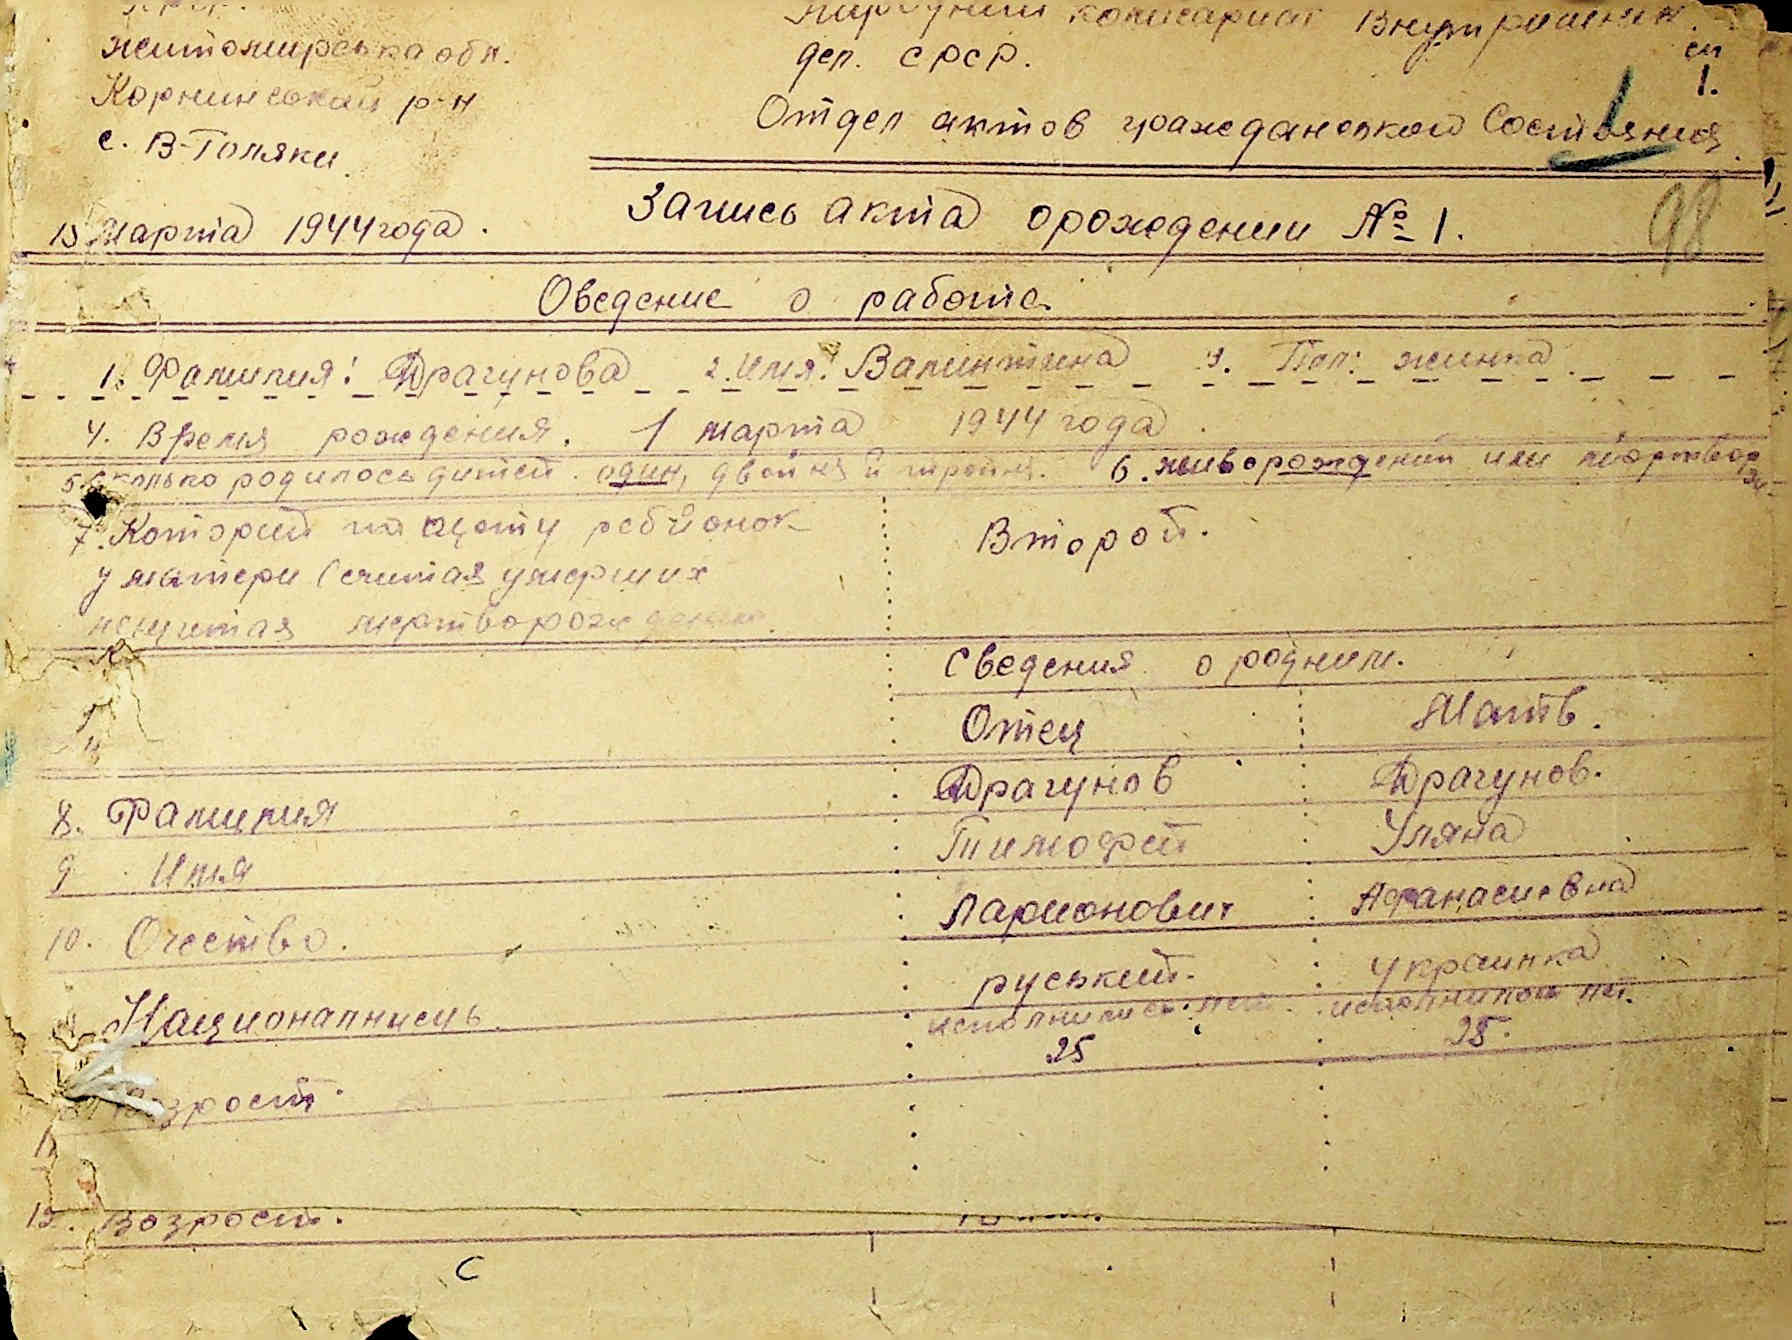 Житомирська обл.
Корнинський р-н
с. В-Голяки
Народний комісаріат Внутришних
дел. СРСР.
Отдел актов гражданськой Состояния
1.
15 марта 1944 года.
Запись акта орождении № 1.
98
Сведение о работе
1. Фамилия: Драгунова 2. Имя: Валинтина 3. Пол: жинка
4. Время рождения. 1 марта 1944 года.
5. Сколько родилось дитей. один, двойня и тройня. 6. живорождений или мёртвор
7. Которий по щету ребйонок
Второй.
у матери (считая умерших
несчитая мертворожденых.
Сведения о родним.
Отец Мать.
8. Фамилия Драгунов Драгунов.
9 Имя Тимофей Уляна
10. Очество. Ларионович Афанасиевна
Национапнисць руський. Украинка
исполнилось лет исполнилось лет.
Возрост. 25 25.
12. Возрост.
С